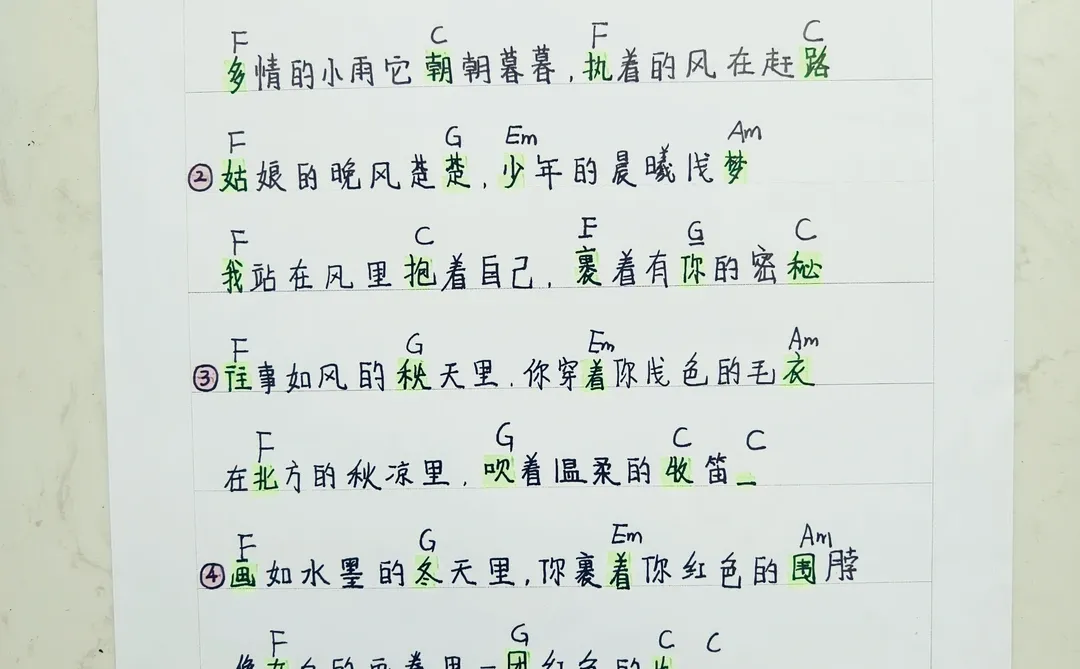 F C F C
多情的小雨它朝朝暮暮，执着的风在赶路
F G Em Am
②姑娘的晚风楚楚，少年的晨曦浅梦
F C F G C
我站在风里抱着自己，裹着有你的密秘
F G Em Am
③往事如风的秋天里，你穿着你浅色的毛衣
F G C C
在北方的秋凉里，吹着温柔的牧笛_
F G Em Am
④画如水墨的冬天里，你裹着你红色的围脖
F G C C
的画卷里一团红色的